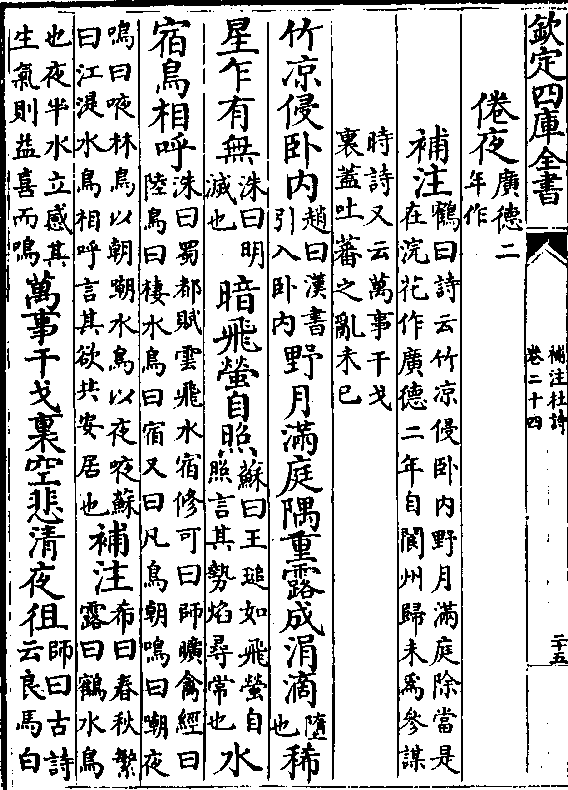 欽定四庫全書
補注杜詩
卷二十四
二十五
倦夜廣德二
年作
補注鶴曰詩云竹凉侵卧内野月滿庭除當是
在浣花作廣德二年自閬州歸未爲參謀
時詩又云萬事干戈
裏蓋吐蕃之亂未已
竹凉侵卧内趙曰漢書
引入卧内野月滿庭隅重露成涓滴墮
也稀
星乍有無洙曰明
滅也暗飛螢自照蘇曰王瑳如飛螢自
照言其勢焰尋常也水
宿鳥相呼洙曰蜀都賦雲飛水宿修可曰師曠禽經曰
陸鳥曰棲水鳥曰宿又曰凡鳥朝鳴曰嘲夜
鳴曰㖡林鳥以朝嘲水鳥以夜㖡蘇
曰江湜水鳥相呼言其欲共安居也補注希曰春秋繁
露曰鶴水鳥
也夜半水立感其
生氣則益喜而鳴萬事干戈裏空悲清夜徂師曰古詩
云良馬白